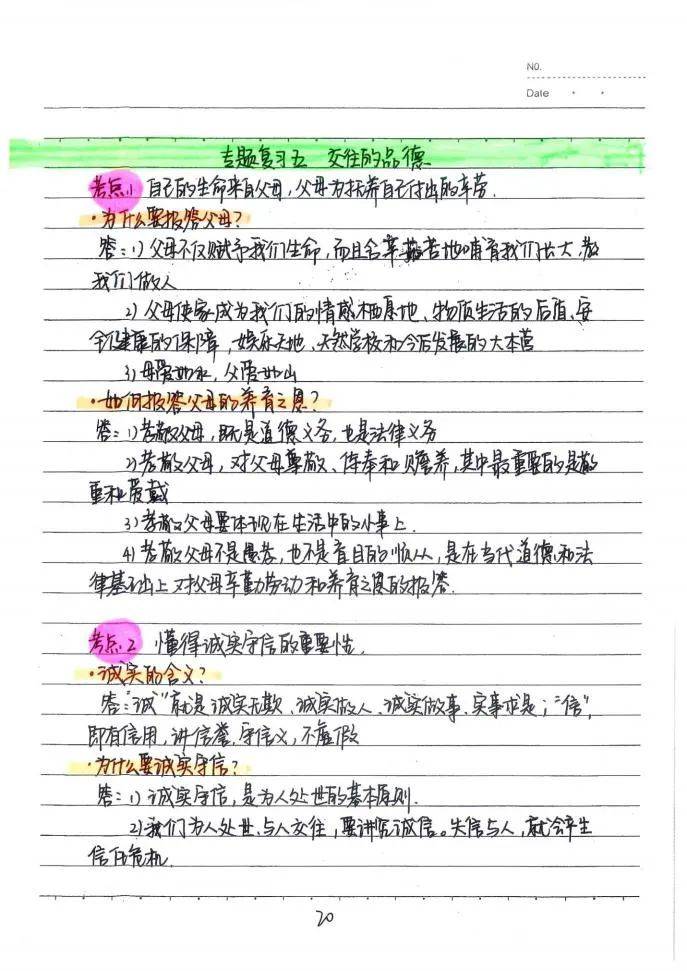 NO.
Date
专题复习五 交往的品德
考点1 自己的生命来自父母，父母为抚养自己付出的辛劳.
·为什么要报答父母？
答：1）父母不仅赋予我们生命，而且含辛茹苦地哺育我们长大，教
我们做人
2）父母使家成为我们的情感栖息地、物质生活的后盾、安
全健康的保障，娱乐天地、天然学校和今后发展的大本营
3）母爱如水，父爱如山
·如何报答父母的养育之恩？
答：1）孝敬父母，既是道德义务，也是法律义务
2）孝敬父母，对父母尊敬、侍奉和赡养，其中最重要的是敬
重和爱戴
3）孝敬父母要体现在生活中的小事上.
4）孝敬父母不是愚孝，也不是盲目的顺从，是在当代道德和法
律基础上对父母辛勤劳动和养育之恩的报答.
考点2 懂得诚实守信的重要性.
·诚实的含义？
答：“诚”就是诚实无欺、诚实做人、诚实做事、实事求是；“信”，
即有信用，讲信誉，守信义，不虚假
·为什么要诚实守信？
答：1）诚实守信，是为人处世的基本原则.
2）我们为人处世、与人交往，要讲究诚信。失信与人，就会产生
信任危机.
20